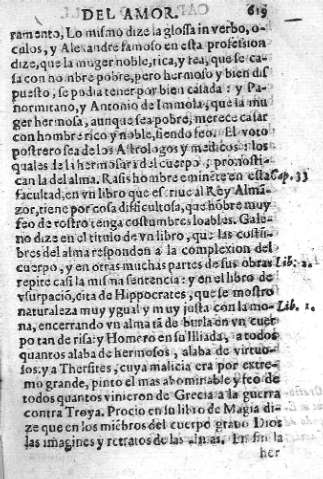 DEL AMOR. 619
ramento, Lo mismo dize la glossa in verbo, o-
culos, y Alexandre famoso en esta profession
dize, que la muger noble, rica, y fea, que se ca-
sa con nombre pobre, pero hermoso y bien dis
puesto, se podia tener por bien casada: y Pa-
normitano, y Antonio de Immola, que la mu
ger hermosa, aunque sea pobre, merece casar
con hombre rico y noble, siendo feo. El voto
postrero sea de los Astrologos y medicos: los
quales de la hermosura del cuerpo, pronosti-
can la del alma. Rasis hombre eminēte en esta Cap. 33
facultad, en vn libro que escriue al Rey Almā-
zor, tiene por cosa dificultosa, que hōbre muy
feo de rostro tenga costumbres loables. Gale-
no dize en el titulo de vn libro, que las costū-
bres del alma responden a la complexion del
cuerpo, y en otras muchas partes de sus obras Lib. 2.
repite casi la misma sentencia: y en el libro de
vsurpació, cita de Hippocrates, que se mostro
naturaleza muy ygual y muy justa con la mo- Lib. 1.
na, encerrando vn alma tā de burla en vn cuer
po tan de risa: y Homero en su Illiada, a todos
quantos alaba de hermosos, alaba de virtuo-
sos: y a Thersites, cuya malicia era por extre-
mo grande, pinto el mas abominable y feo de
todos quantos vinieron de Grecia a la guerra
contra Troya. Procio en su libro de Magia di-
ze que en los miēbros del cuerpo grauo Dios
las imagines y retratos de las almas. En fin la
her